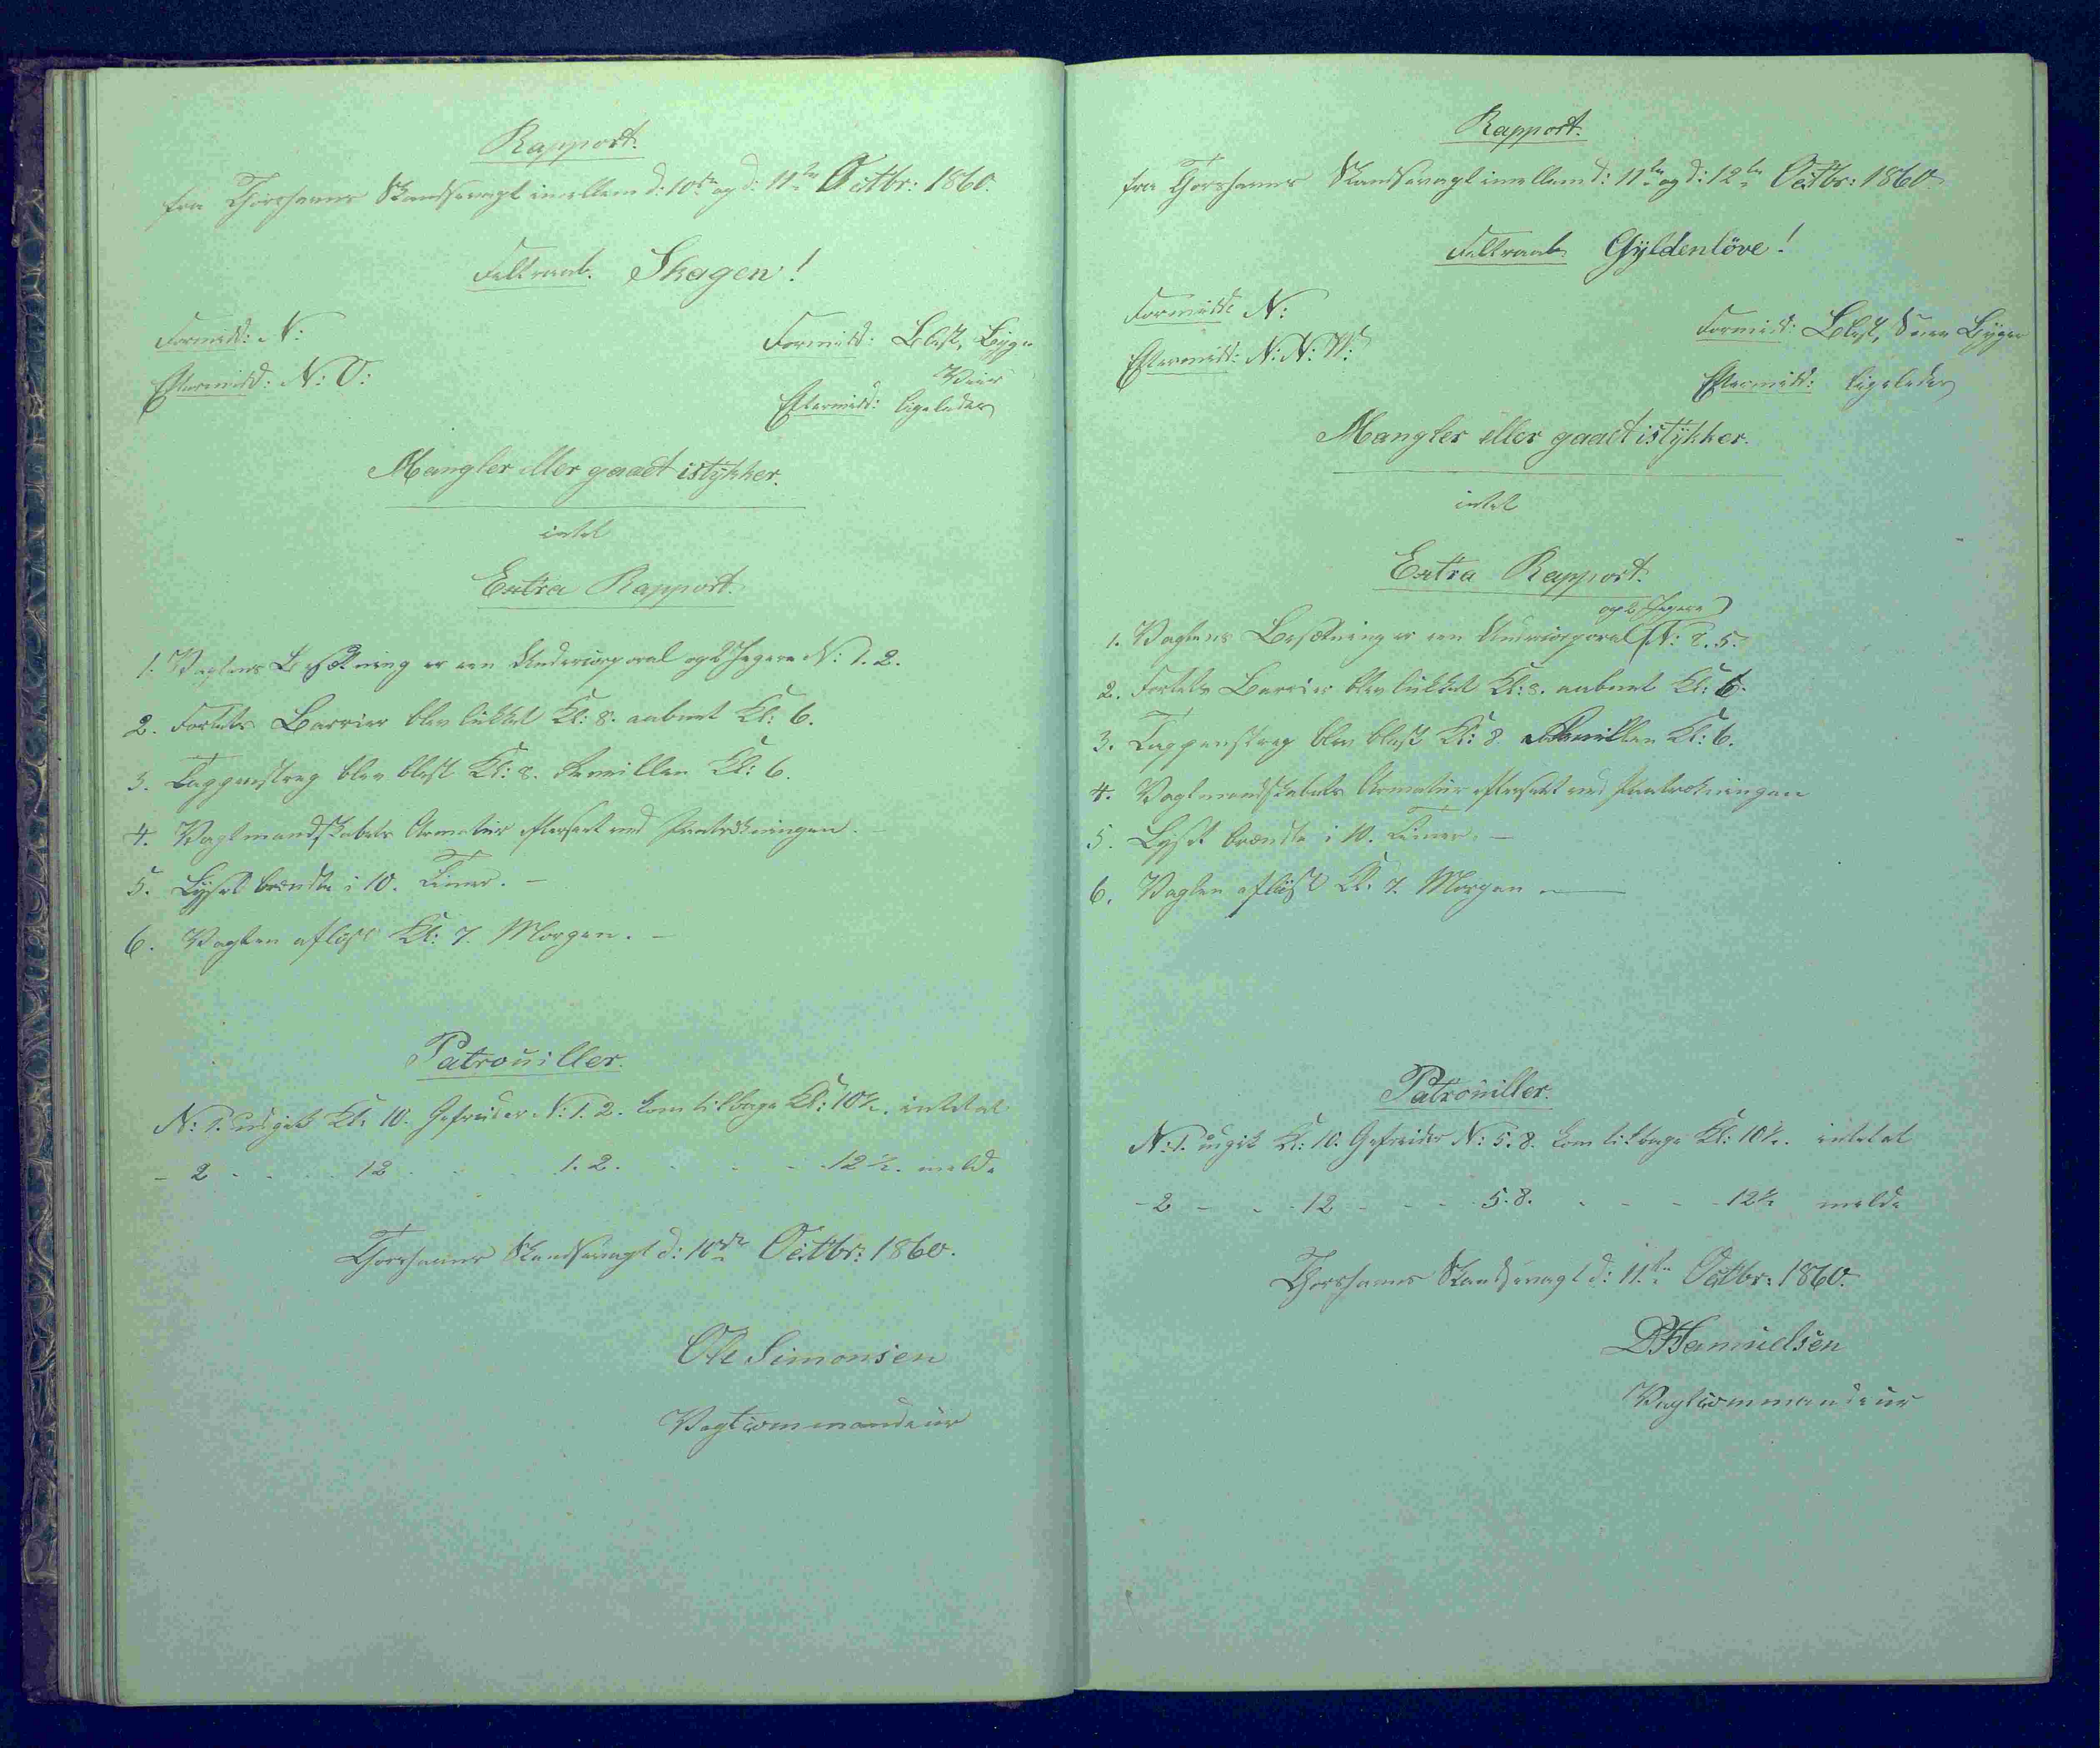 Rapport.
fra Thorshavns Skandsevagt imellem d: 10de og d: 11te Octbr: 1860.
Feltraab. Skagen!
Formidd: N:
Eftermidd: N: O:
Formidd: Blæst, Byge
Veir
Eftermidd: ligeledes
Mangler eller gaaet istÿkker.
intet
Extra Rapport.
1. Vagtens Besætning er een Undercorporal og 2 Jegere N: 1. 2.
2. Fortets Barrier blev lukket Kl: 8. aabnet Kl: 6.
3. Tappenstreg blev blæst Kl: 8. Reveillen Kl: 6.
4. Vagtmandskabets Armatur efterseet ved Paatrækningen. -
5. Lyset brændte i 10. Timer. -
6. Vagten afløst Kl: 7. Morgen. -
Patrouiller.
N: 1. udgik Kl: 10. Gefreider N: 1. 2. kom tilbage Kl: 10½. intet at
- 2 - - - 12 - - - 1. 2. - - - 12½. melde
Thorshavns Skandsevagt d: 10de Octbr: 1860.
Ole Simonsen
Vagtcommandeur
Rapport.
fra Thorshavns Skandsevagt imellem d: 11te og d: 12te Octbr: 1860
Feltraab. Gÿldenlöve!
Formidd: N:
Eftermidd: N: N: W:
Formidd: Blæst, Snee Byger
Eftermidd: ligeledes
Mangler eller gaaet istÿkker.
intet
Extra Rapport.
og 2 Jegere
1. Vagtens Besætning er een Undercorporal N: 8. 5.
2. Fortets Barrier blev lukket Kl: 8. aabnet Kl: 6.
3. Tappenstreg blev blæst Kl: 8. Reveillen Kl: 6.
4. Vagtmandskabets Armatur efterseet ved Paatrækningen
5. Lyset brændte i 10. Timer. -
6. Vagten afløst Kl. 7. Morgen -
Patrouiller.
N: 1. udgik Kl: 10. Gefreider N: 5. 8. kom tilbage Kl: 10½. intet at
- 2 - - - 12 - - - 5. 8. - - - 12½ melde
Thorshavns Skandsevagt d: 11te Octbr: 1860.
Samuelsen
Vagtcommandeur